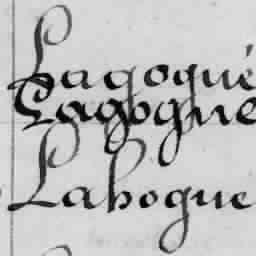 Lagogué
Gagogne
Lahogue